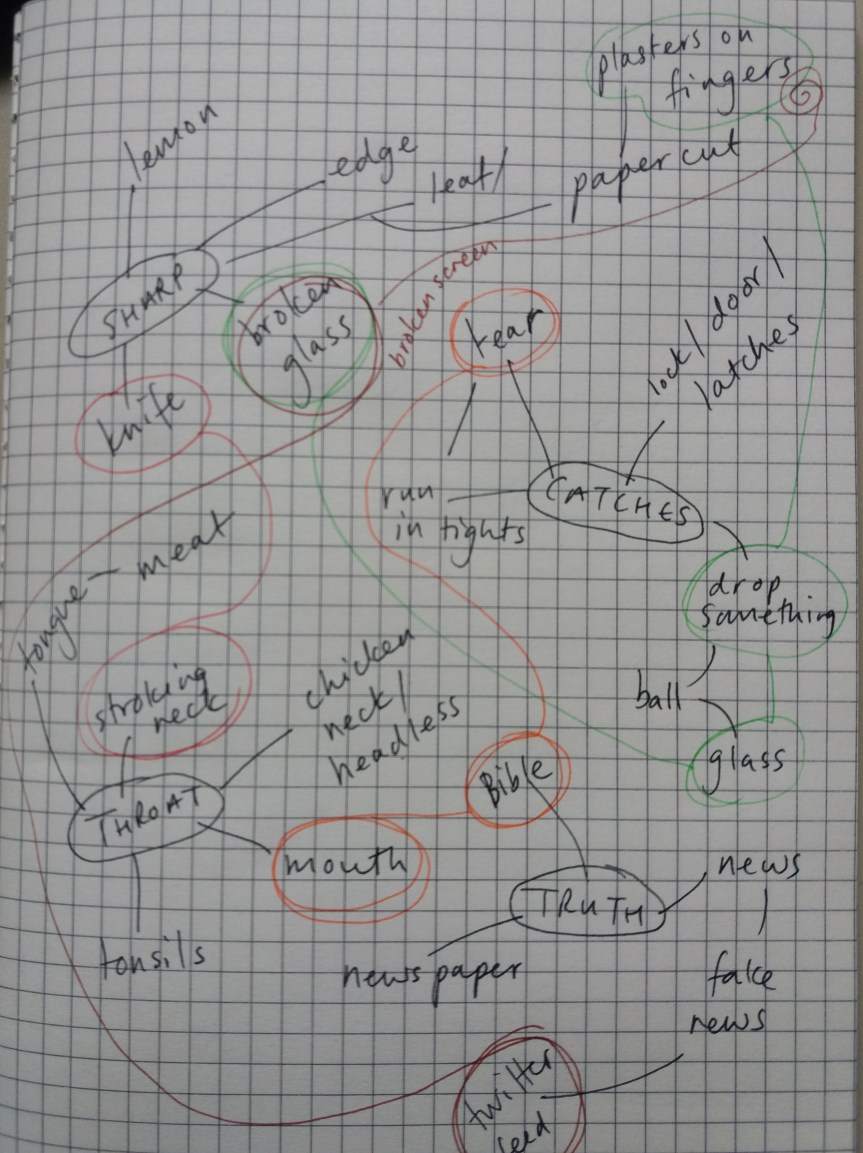 plasters on
fingers
lemon
edge
leaf/
paper cut
SHARP
broken
glass
broken screen
tear
lock/door/
latches
knife
run
in tights
CATCHES
meat
tongue
drop
something
stroking
neck
chicken
neck/
headless
ball
glass
Bible
THROAT
mouth
TRUTH
news
tonsils
newspaper
fake
news
twitter
feed